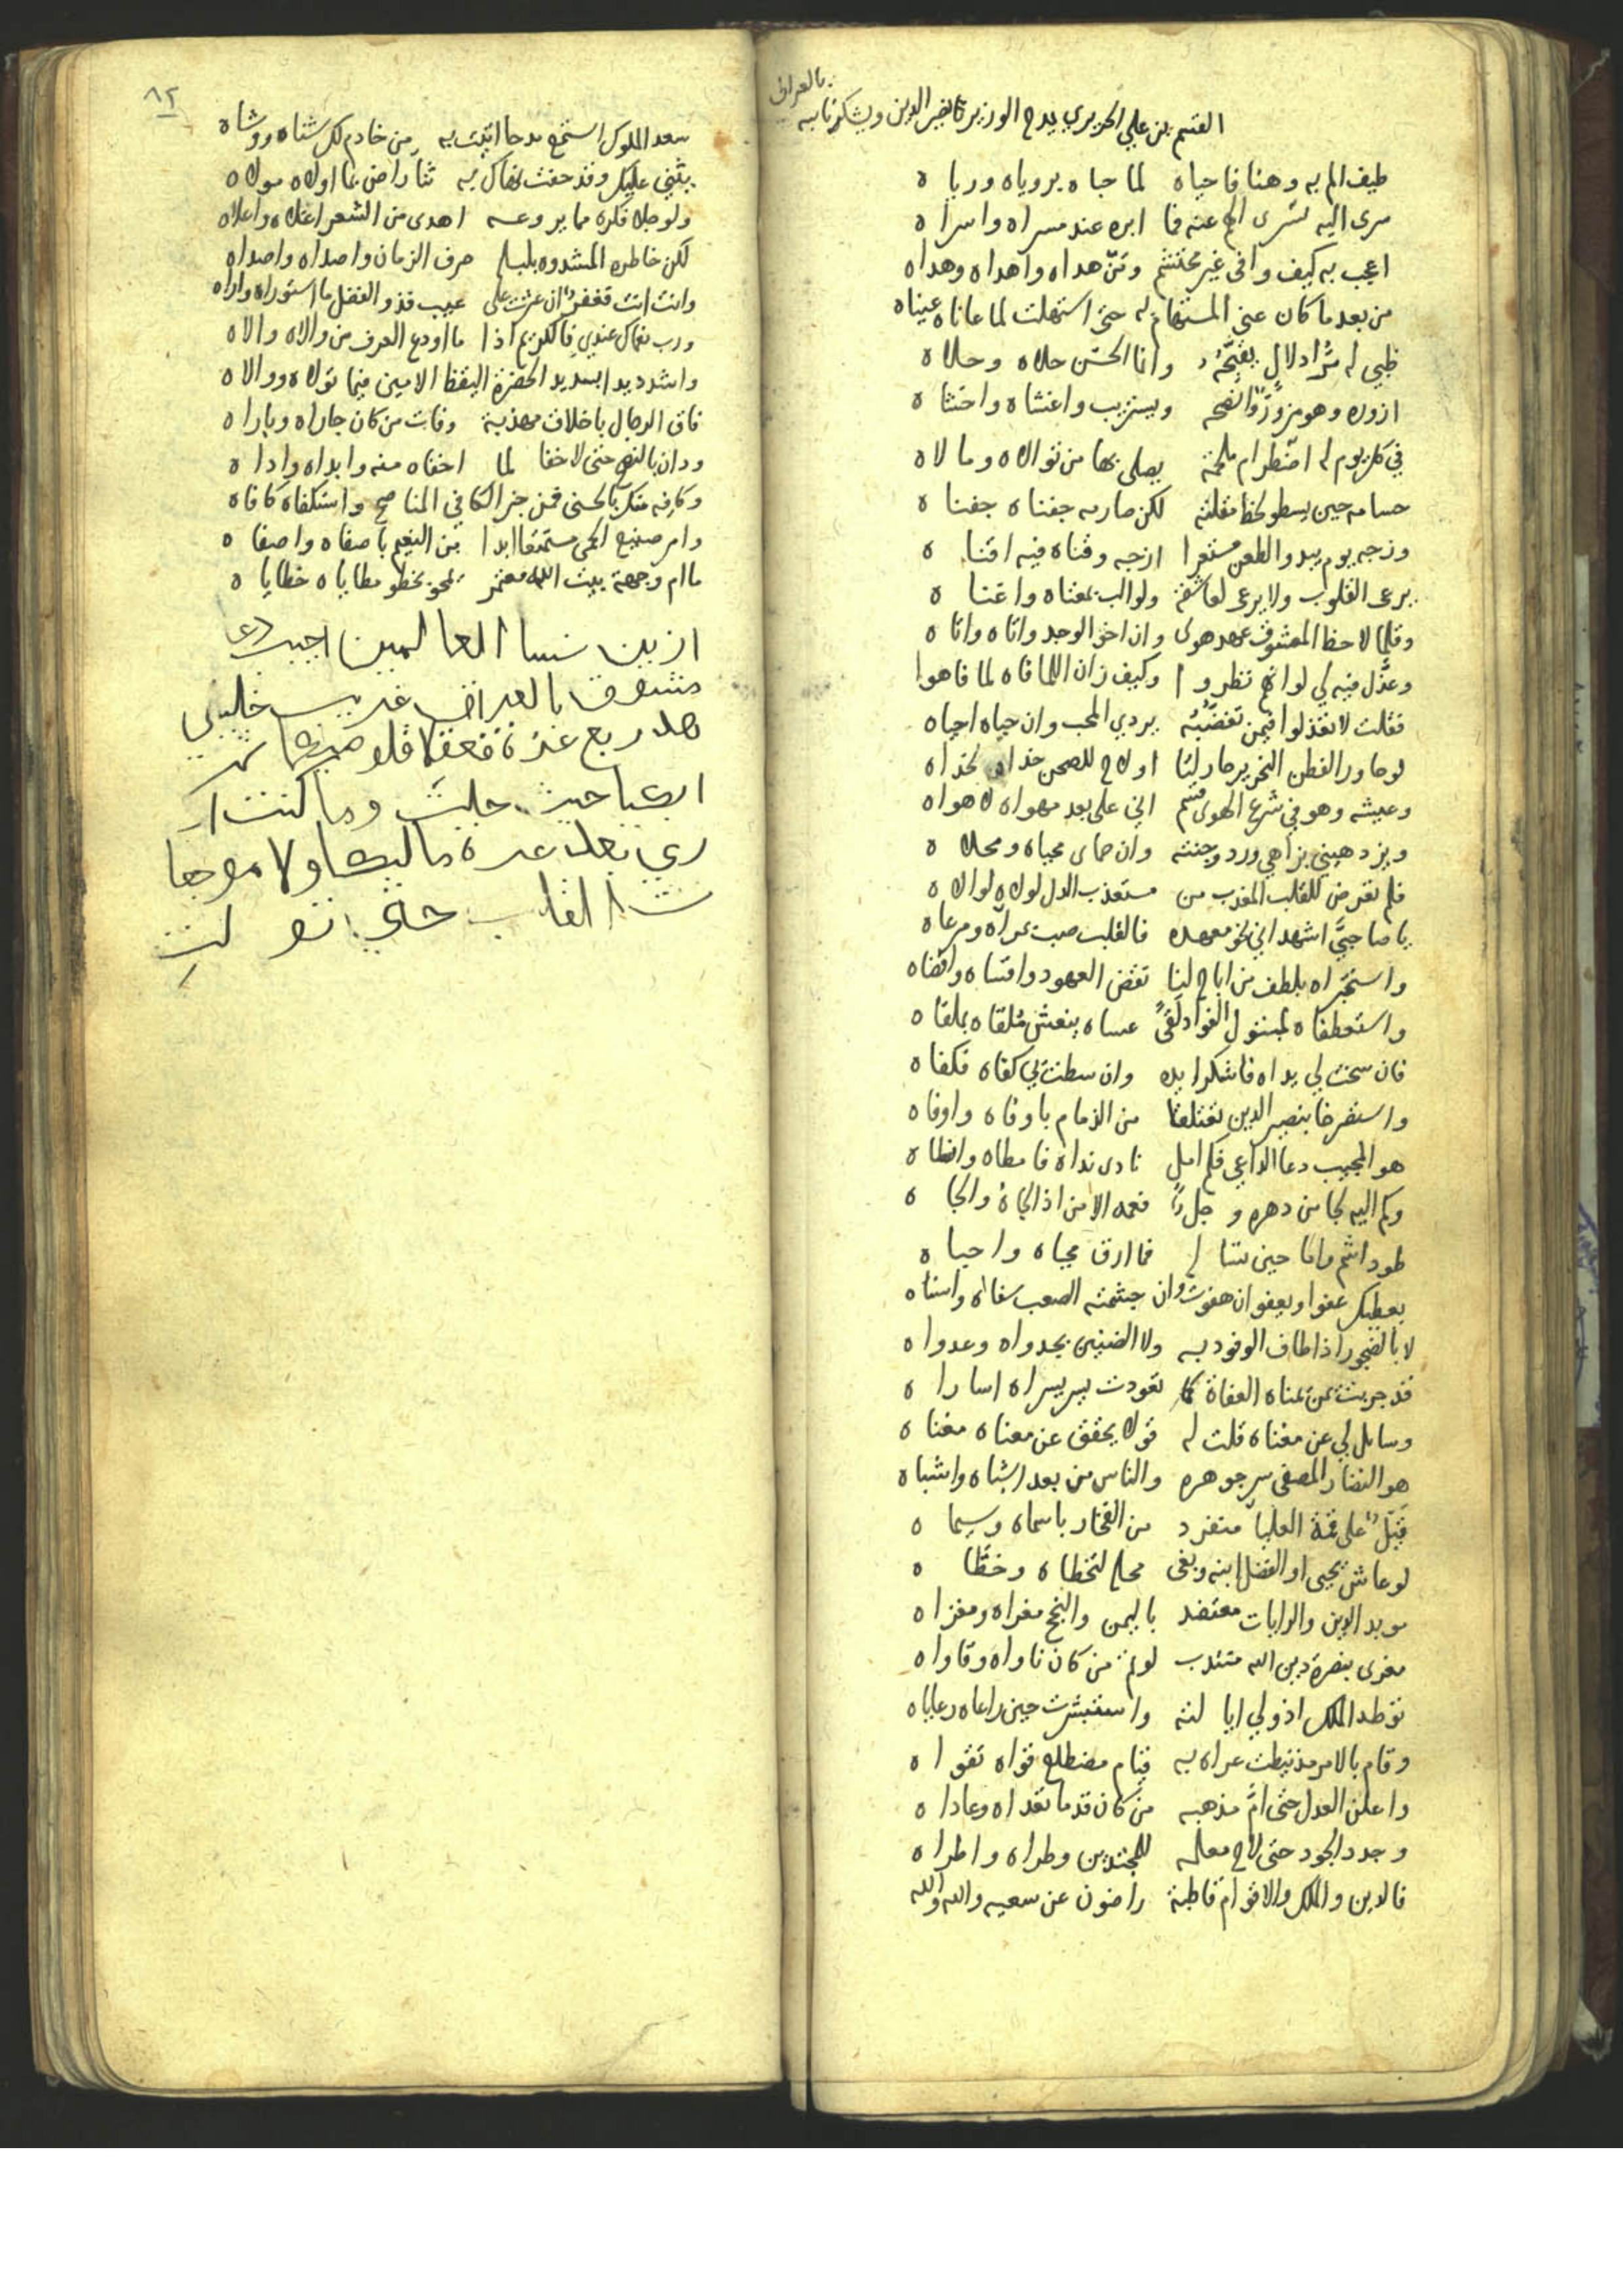 القسم بن علي الحريري يمدح الوزير نصير الدين ويشكر نايبه
بالعراق
طيف الم به وهنا فاحياه لما حباه برؤياه ورياه
سرى اليه فسرى الهم عنه فما ابره عند مسراه واسراه
اعجب به كيف وافى غير محتشم ومن هداه واهداه وهداه
من بعد ما كان عني المستهام به حتى استهلت لما عاناه عيناه
ظبي له دلال وانا الحسن حلاه وحلاه
ازوره وهو مزور ويستريب واغشاه واخشاه
في كل يوم له اضطرام ملحمة يصلى بها من توالاه ومالاه
حسامه حين يسطو لحظ مقلته لكن صارمه جفناه جفناه
وزجه يوم يبدو الطعن مستعرا ازجه وقناه فيه اقناه
يرعى القلوب ولا يرعى لعاشقه ولو الب بمغناه واغناه
وقلما لاحظ المعشوق عهد هوى وان اخو الوجد واتاه واتاه
وعذل فيه لي لو انهم نظروا وكيف زان اللما فاه لما فاهوا
فقلت لا تعذلوا فيمن تغضبه يردي المحب وان حياه احياه
لو حاور الفطن النحرير حار له او لاح للصحن خداه لخداه
وعيشه وهو في شرع الهوى قسم اني على بعد مهواه لاهواه
ويزدهيني بزاهي ورد وجنته وان حماى محياه ومحلاه
فلم تعرض للقلب المعذب من مستعذب الدل لولاه لوالاه
يا صاحبي اشهدا اني نحو معهده فالقلب صب بمرآه ومرعاه
واستخبراه بلطف من اباح لنا نقض العهود وافتاه واقضاه
واستعطفاه لمتبول الفؤاد لقى عساه ينعش ملقاه بملقاه
فان سخت لي يداه فاشكرا يده وان سطت بي كفاه فكفاه
واستصرخا بنصير الدين تعتلقا من الزمام باوفاه واوفاه
هو المجيب دعا الداعي فكم امل نادى نداه فامطاه وانطاه
وكم اليه لجا من دهره وجل فعمه الامن اذ الجاه والجاه
طود اشم واما حين فما ارق محياه واحياه
يعطيك عفوا ويعفو ان هفوت وان جشمته الصعب سناه واسناه
لا بالضجور اذا طاف الوفود به ولا الضنين بجدواه وعدواه
قد جربت يمن يمناه العفاة كما تعودت يسر يسراه اساراه
وسايل لي عن مغناه قلت له قولا يحقق عن معناه مغناه
هو النضار المصفى سر جوهره والناس من بعد اشباه واشباه
على قمة العليا منفرد من الفخار باسماه وسيماه
لو عاش يحيى او الفضل ابنه وبغى محله لتخطاه وخطاه
مويد الدين والرايات معتضد باليمن والنجح مغراه ومغزاه
مغرى بنصرة دين الله منتدب لوقم من كان ناواه وقاواه
توطد الملك اذ ولي ايالته واستبشرت حين راعاه رعاياه
وقام بالامر مذ نيطت عراه به قيام مضطلع قواه تقواه
واعلن العدل حتى ام مذهبه من كان قدما تعداه وعاداه
وجدد الجود حتى لاح معلمه للمجتدين وطراه واطراه
فالدين والملك والاقوام قاطبة راضون عن سعيه والله والله
٨٢
سعد الملوك استمع مدحا اتيت به من خادم لك شناه ووشاه
يثني عليك وقد حفت نعماك به ثنا راض بما اولاه مولاه
ولو جلا فكره مما يروعه اهدى من الشعر اغلاه واعلاه
لكن خاطره المشدوه بلبله صرف الزمان واصداه واصداه
وانت انت فغفرا ان عثرت على عيب فذو الفضل ما استوراه واراه
ورب نعماك عندي فالكريم اذا ما اودع العرف من والاه والاه
واشدد يدا بسديد الحضرة اليقظ الامين فيما تولاه ووالاه
فاق الرجال باخلاق مهذبة وفات من كان جاراه وباراه
ودان بالنصح حتى لا خفا لما اخفاه منه وابداه واداه
وكافه منك بالحسنى فمن خبر الكافي المناصح واستكفاه كافاه
وامر صنيع الحي مستمتعا ابدا من النعيم باصفاه واضفاه
ما ام وجهة بيت الله معتمر نحو بخطو مطاياه خطاياه
ازين نسا العالمين اجيبي دعا
مشوق بالعراق غريب خليلي
هذا ربع عزة فعقلا قلوصيكما ثم
ابكيا حيث حلت وما كنت اد
ري قبل عزة ما البكا ولا موجعا
ت القلب حتى تولت